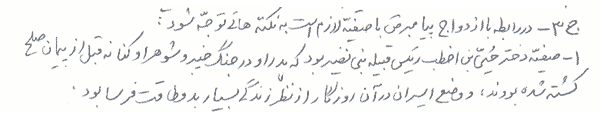 ج ۳- در رابطه با ازدواج پیامبر ص با صفیّه لازم است به نکته هائی توجّه شود:
۱- صفیّه دختر حُیَیّ بن اخطب رئیس قبیله بنی نضیر بود که پدر او در جنگ خیبر و شوهر او کنانه قبل از پیمان صلح
کشته شده بودند، و وضع اسیران در آن روزگار از نظر زندگی بسیار بد و طاقت فرسا بود.